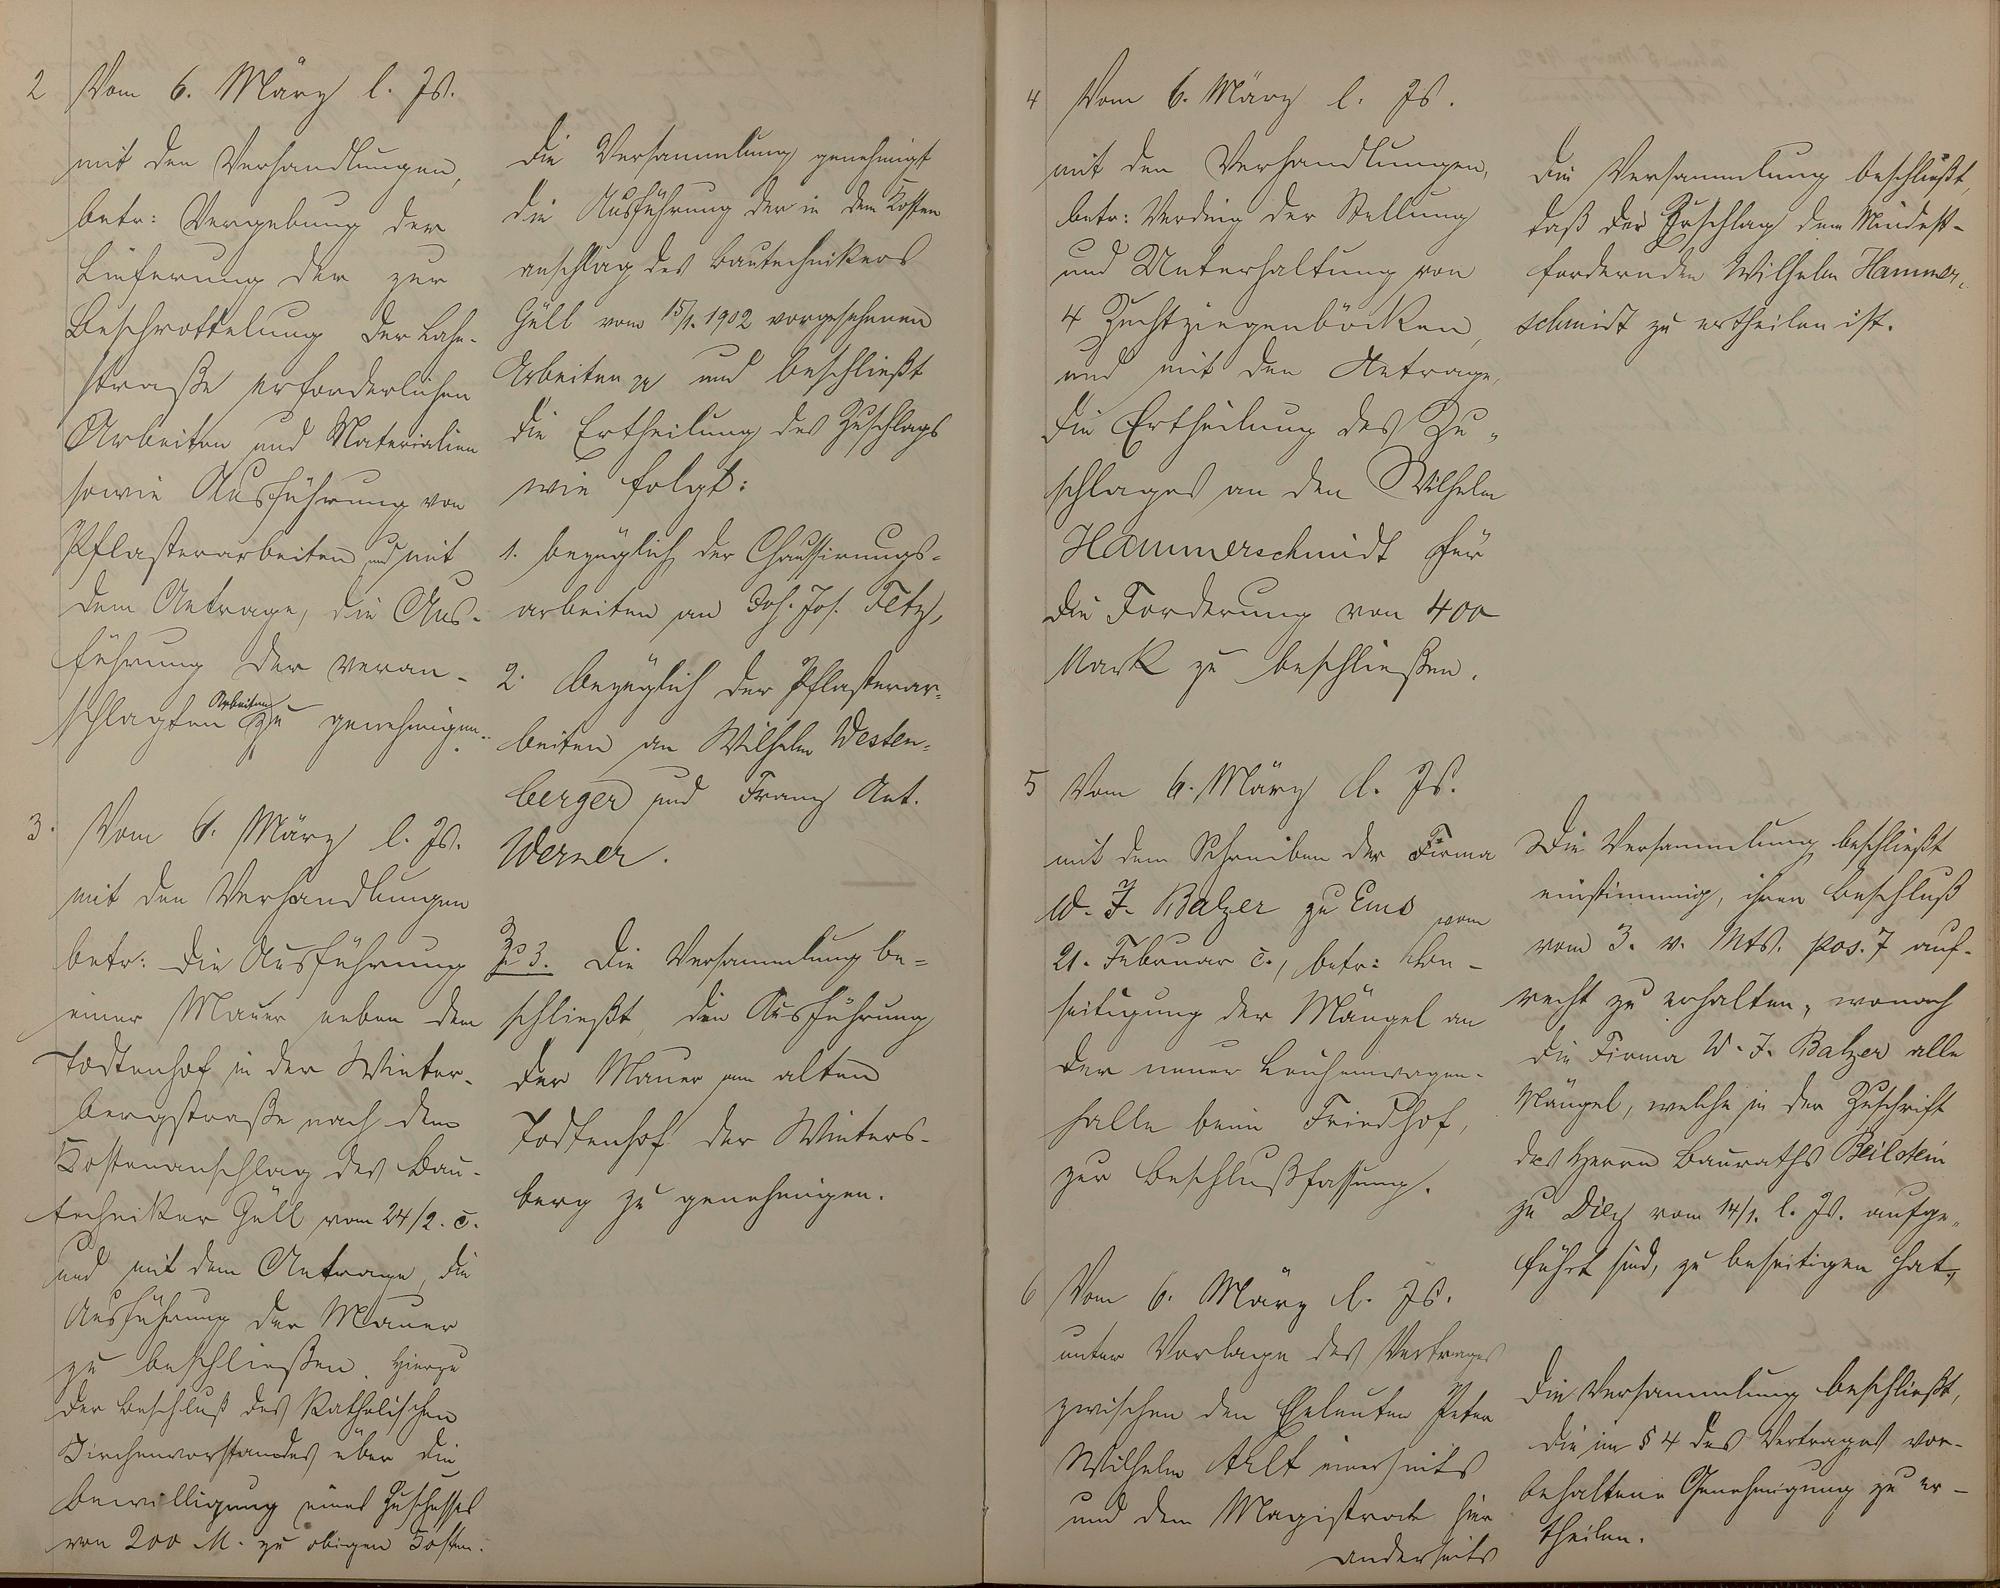 2 Vom 6. März l. Js.
mit den Verhandlungen,
betr: Vergebung der
Lieferung der zur
Beschrottelung der Lahn-
straße erforderlichen
Arbeiten und Materialien
sowie Ausführung von
Pflasterarbeiten und mit
dem Antrage, die Aus-
führung der veran-
schlagten Arbeiten zu genehmigen.
3. Vom 6. März l. Js.
mit den Verhandlungen
betr: die Ausführung
einer Mauer neben dem
Todtenhof in der Winter-
bergstraße nach dem
Kostenanschlag des Bau-
techniker Güll vom 24/2. c.
und mit dem Antrage, die
Ausführung der Mauer
zu beschließen. Hierzu
der Beschluß des Katholischen
Kirchenvorstandes über die
Bewilligung eines Zuschusses
von 200 M. zu obigen Kosten.
Die Versammlung genehmigt
die Ausführung der in dem Kosten
anschlag des Bautechnikers
Güll vom 15/1. 1902 vorgesehenen
Arbeiten und beschließt
die Ertheilung des Zuschlags
wie folgt:
1. bezüglich der Chaussirungs-
arbeiten an Joh. Jos. Fetz,
2. bezüglich der Pflasterar-
beiten an Wilhelm Westen-
berger und Franz Ant.
Werner.
Zu 3. Die Versammlung be-
schließt, die Ausführung
der Mauer am alten
Todtenhof der Winters-
berg zu genehmigen.
4 Vom 6. März l. Js.
mit den Verhandlungen,
betr: Verding der Stellung
und Unterhaltung von
4 Zuchtziegenböcken,
und mit den Antrage,
die Ertheilung des Zu-
schlages an den Wilhelm
Hammerschmidt für
die Forderung von 400
Mark zu beschließen.
5 Vom 6. März l. Js.
mit dem Schreiben der Firma
W. J. Balzer zu Ems vom
21. Februar c., betr: Be-
seitigung der Mängel an
der neuen Leichenwagen-
halle beim Friedhof,
zur Beschlußfassung.
6 Vom 6. März l. Js.
unter Vorlage des Vertrages
zwischen den Eheleuten Peter
Wilhelm Arlt einerseits
und dem Magistrat hier
anderseits
Die Versammlung beschließt,
daß der Zuschlag dem Mindest-
fordernden Wilhelm Hammer-
schmidt zu ertheilen ist.
Die Versammlung beschließt
einstimmig, ihren Beschluß
vom 3. v. Mts. pos. 7 auf-
recht zu erhalten, wonach
die Firma W. J. Balzer alle
Mängel, welche in der Zuschrift
des Herrn Bauraths Beilstein
zu Diez vom 14/1. l. Js. aufge-
führt sind, zu beseitigen hat.
Die Versammlung beschließt,
die im § 4 des Vertrages vor-
behaltene Genehmigung zu er-
theilen.